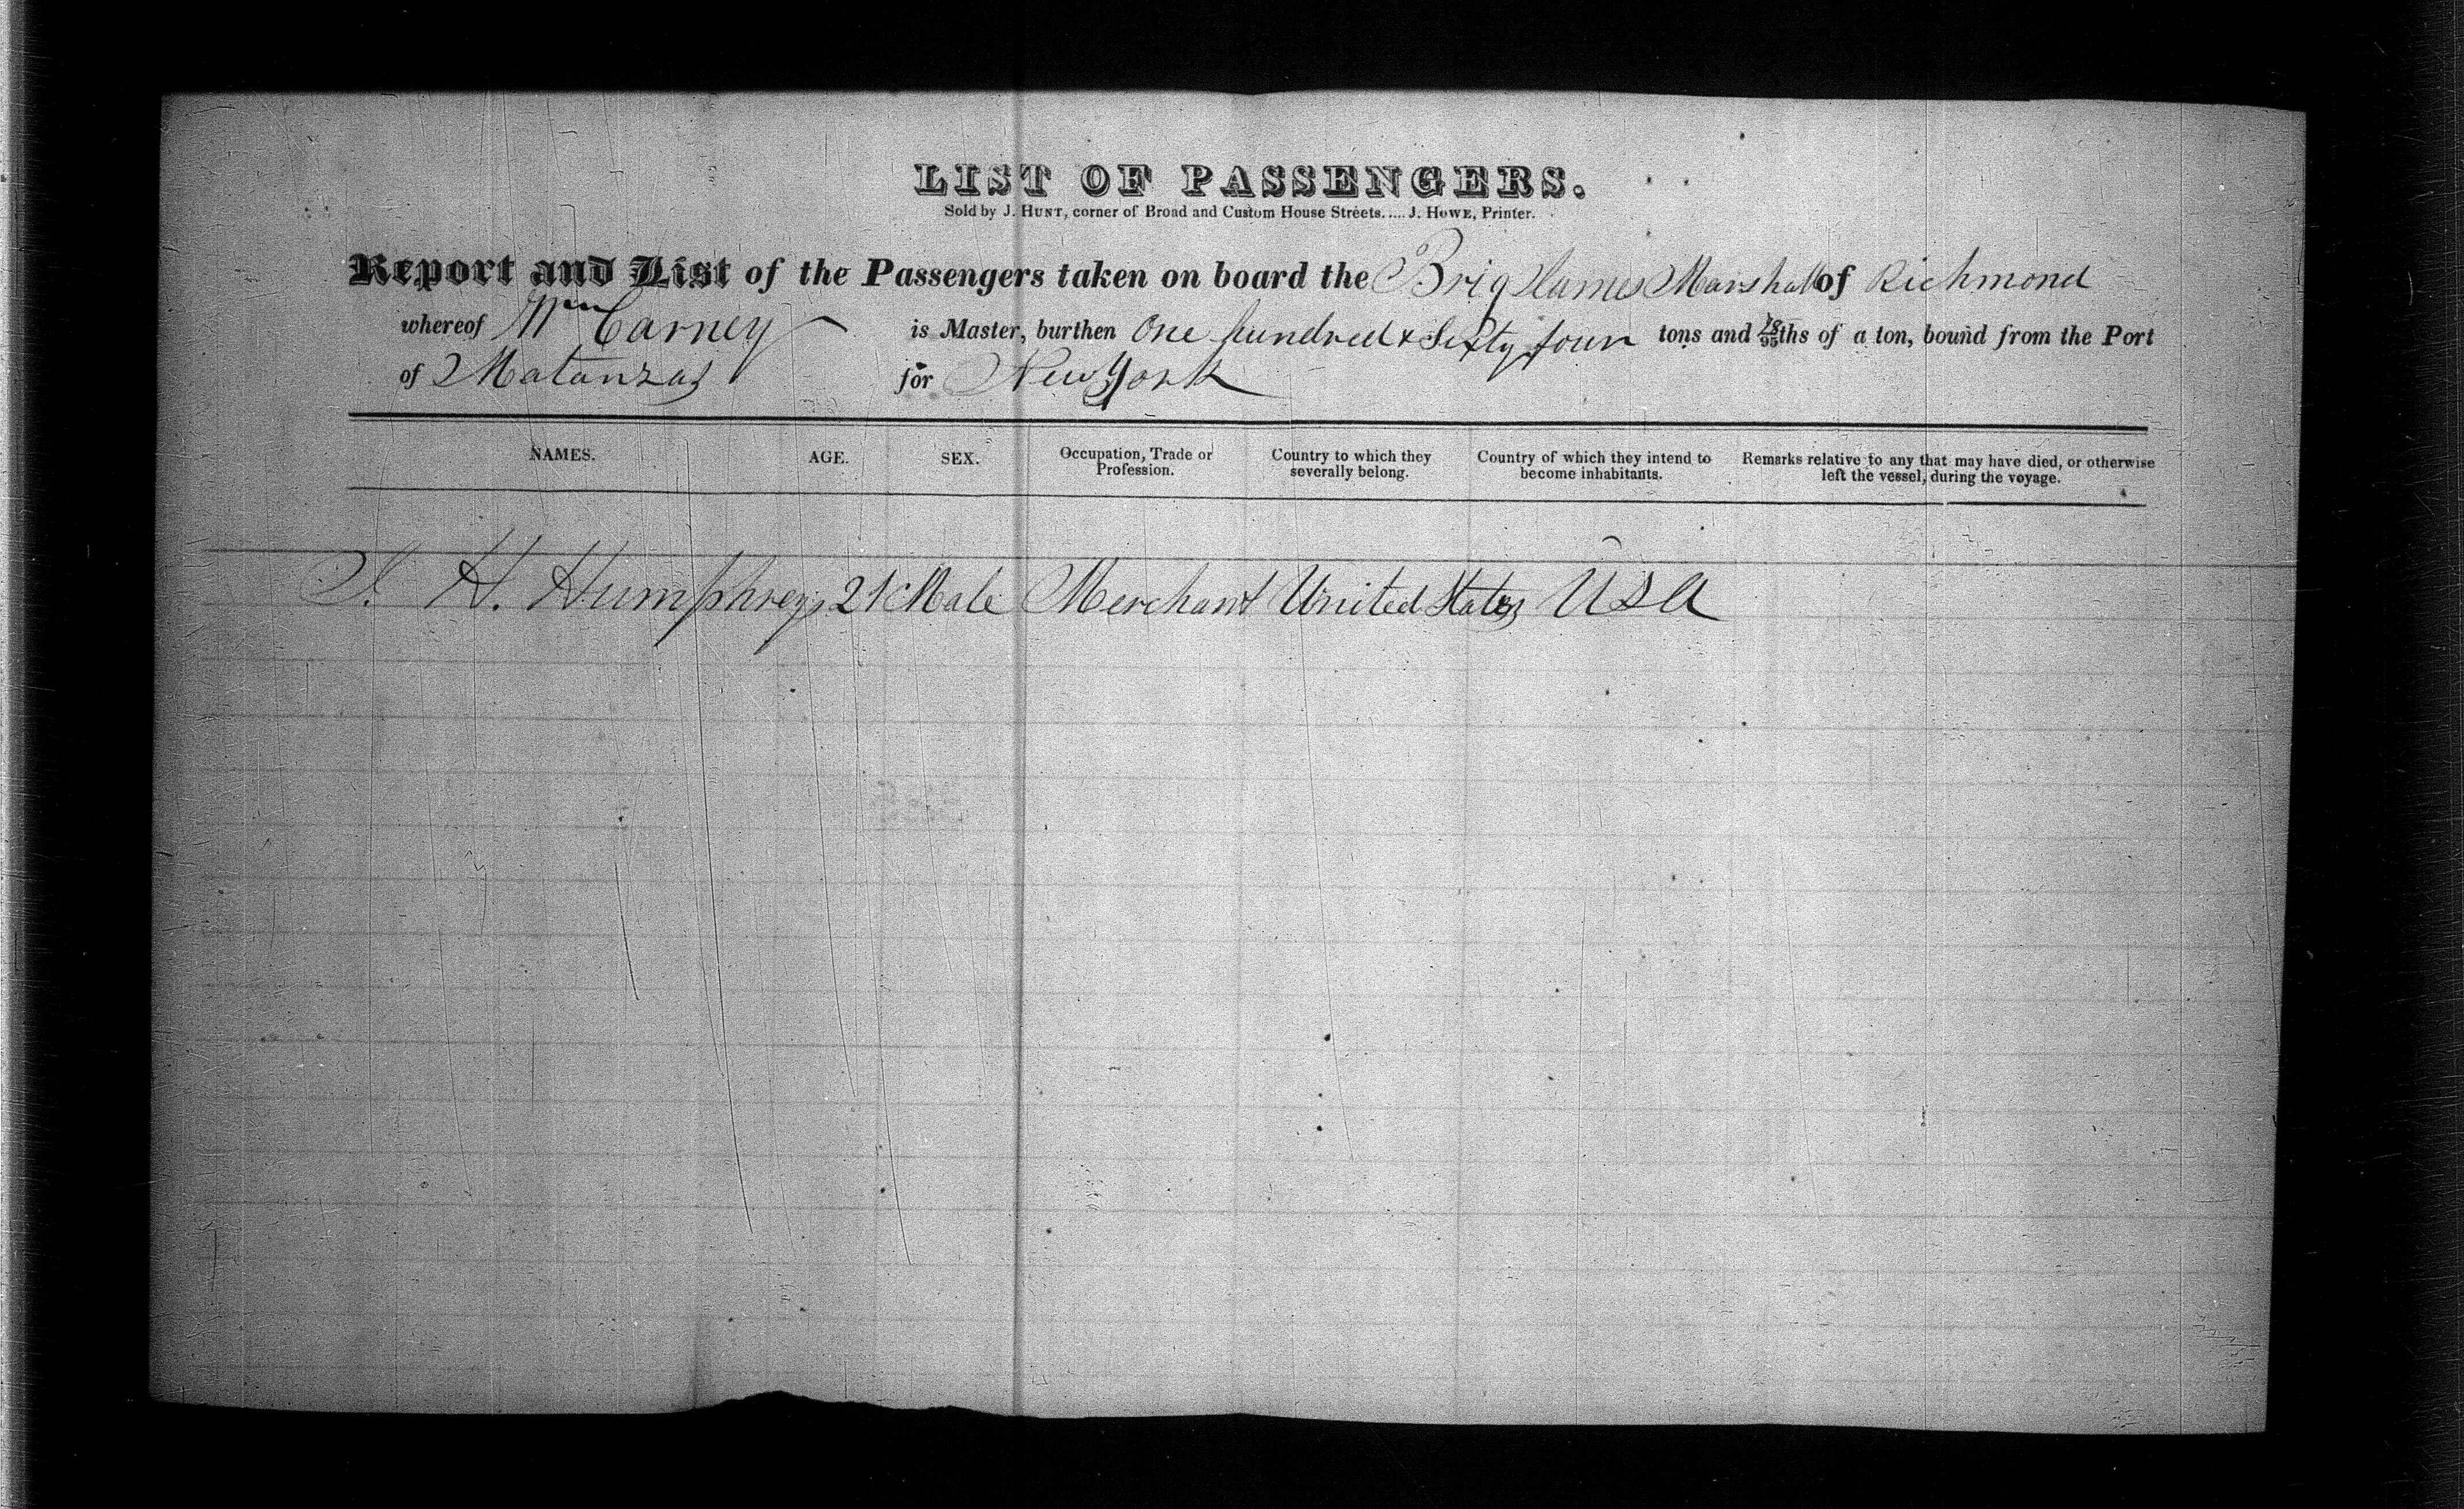 LIST OF PASSENGERS.
Sold by J. HUNT, corner of Broad and Custom House Streets..... J. HOWE, Printer.
Report and List of the Passengers taken on board the Brig James Marshall of Richmond
whereof Wm Carney is Master, burthen One hundred & Sixty four tons and 18/95ths of a ton, bound from the Port
of Matanzas for New York
NAMES. AGE. SEX. Occupation, Trade or Profession. Country to which they severally belong. Country of which they intend to become inhabitants. Remarks relative to any that may have died, or otherwise left the vessel, during the voyage.
H. Humphreys 21 Male Merchant United States USA